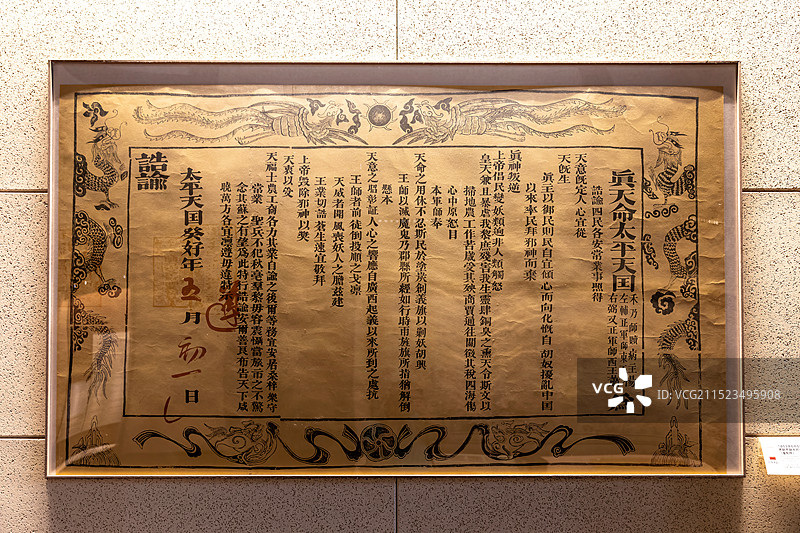 真天命太平天国
禾乃師贖病主
左輔正軍師東
右弼又正軍師西王
誥諭四民各安常業事照得
天意既定人心宜從
天既生
真主以御民則民自宜傾心而向化慨自胡奴擾亂中国
以來率民拜邪神而棄
真神叛逆
上帝倡民變妖類迥非人類觸怒
皇天兼且暴虐我黎庶殘害我生靈肆銅臭之熏天令斯文以
掃地農工作苦歲受其殃商賈通往關徵其税四海傷
心中原怒目
本軍師奉
天命之用休不忍斯民於塗炭創義旗以剿妖胡興
王師以滅魔鬼乃郡縣所經如行時雨旌旗所指猶解倒
懸本
天意之昭彰証人心之響應自廣西起義以來所到之處抗
王師者前徒倒投順之戈凜
天威者聞風喪妖人之膽茲建
王業切誥蒼生速宜敬拜
上帝毀除邪神以獎
天衷以受
天福士農工商各力其業自諭之後爾等務宜安居桑梓樂守
常業聖兵不犯秋毫羣黎毋容震懾當旅市之不驚
念其蘇之有望為此特行誥諭安爾善良布告天下咸
曉萬方各宜凛遵毋違
太平天国癸好年五月初一日
誥諭
遵
VCG
VCG211523495908